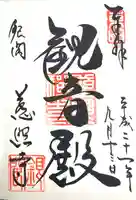 奉拝
平成二十一年
九月
観音殿
銀閣
慈照寺